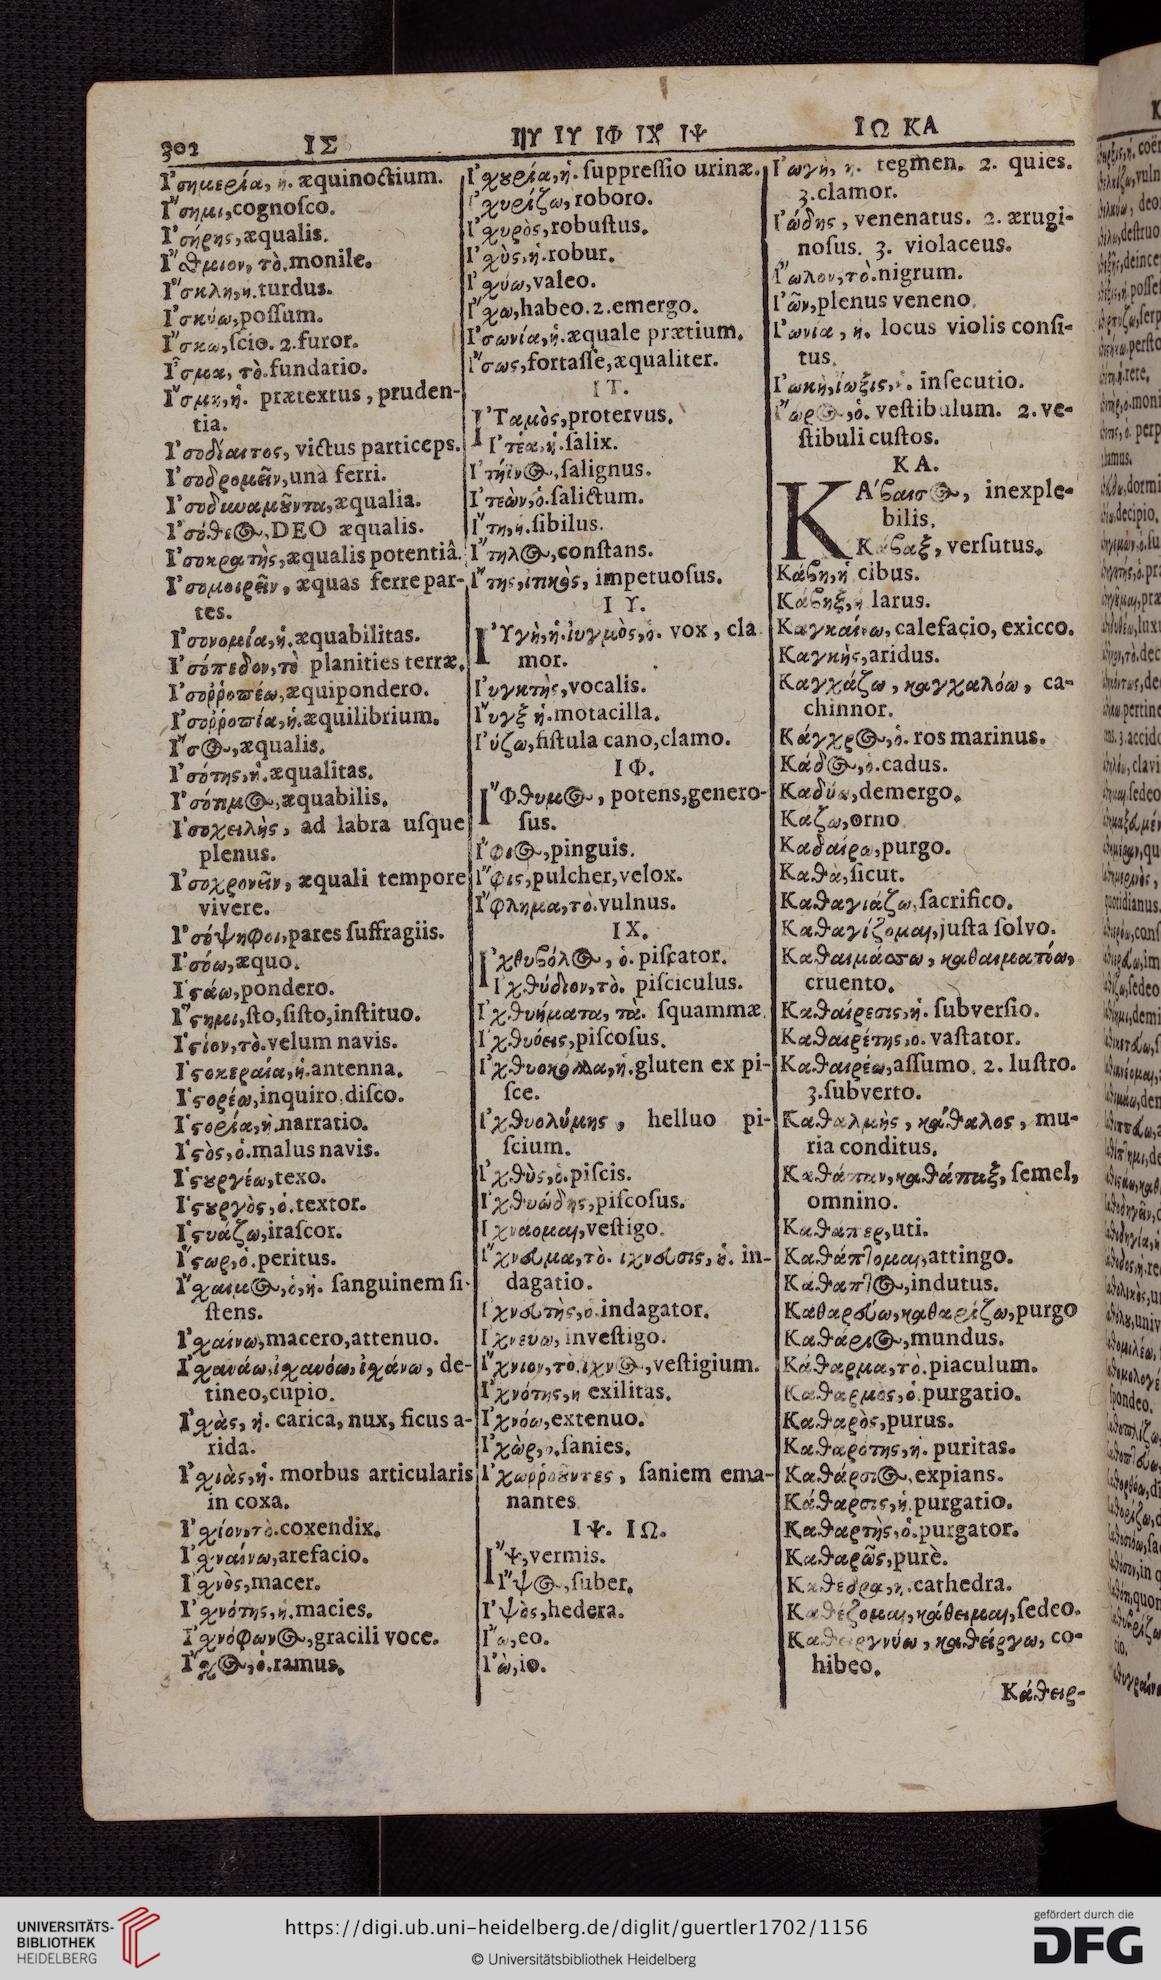 302 ΙΣ ΙΤ ΙΥ ΙΦ ΙΧ ΙΨ ΙΩ ΚΑ
Ἰσημερία, ἡ. æquinoctium.
Ἴσημι, cognoſco.
Ἰσήρης, æqualis.
Ἴσθμιον, τὸ. monile.
Ἴσκλη, ἡ. turdus.
Ἰσκύω, poſſum.
Ἴσκω, ſcio. 2. furor.
Ἶσμα, τὸ. fundatio.
Ἴσμη, ἡ. prætextus, pruden-
tia.
Ἰσοδίαιτος, victus particeps.
Ἰσοδρομεῖν, unà ferri.
Ἰσοδυναμοῦντα, æqualia.
Ἰσόθεος, DEO æqualis.
Ἰσοκρατὴς, æqualis potentiâ.
Ἰσομοιρεῖν, æquas ferre par-
tes.
Ἰσονομία, ἡ. æquabilitas.
Ἰσόπεδον, τὸ planities terræ.
Ἰσοῤῥοπέω, æquipondero.
Ἰσοῤῥοπία, ἡ. æquilibrium.
Ἴσος, æqualis.
Ἰσότης, ἡ. æqualitas.
Ἰσότιμος, æquabilis.
Ἰσοχειλὴς, ad labra uſque
plenus.
Ἰσοχρονεῖν, æquali tempore
vivere.
Ἰσόψηφοι, pares ſuffragiis.
Ἰσόω, æquo.
Ἱστάω, pondero.
Ἵστημι, ſto, ſiſto, inſtituo.
Ἱστίον, τὸ. velum navis.
Ἱστοκεραία, ἡ. antenna.
Ἱστορέω, inquiro, diſco.
Ἱστορία, ἡ. narratio.
Ἱστὸς, ὁ. malus navis.
Ἱστουργέω, texo.
Ἱστουργὸς, ὁ. textor.
Ἱστυάζω, iraſcor.
Ἵστωρ, ὁ. peritus.
Ἴσχαιμος, ὁ, ἡ. ſanguinem ſi-
ſtens.
Ἰσχαίνω, macero, attenuo.
Ἰσχανάω, ἰσχανόω, ἰσχάνω, de-
tineo, cupio.
Ἰσχὰς, ἡ. carica, nux, ficus a-
rida.
Ἰσχιὰς, ἡ. morbus articularis
in coxa.
Ἰσχίον, τὸ. coxendix.
Ἰσχναίνω, arefacio.
Ἰσχνὸς, macer.
Ἰσχνότης, ἡ. macies.
Ἰσχνόφωνος, gracili voce.
Ἴσχος, ὁ. ramus.
Ἰσχουρία, ἡ. ſuppreſſio urinæ.
Ἰσχυρίζω, roboro.
Ἰσχυρὸς, robuſtus.
Ἰσχὺς, ἡ. robur.
Ἰσχύω, valeo.
Ἴσχω, habeo. 2. emergo.
Ἰσωνία, ἡ. æquale prætium.
Ἴσως, fortaſſe, æqualiter.
ΙΤ.
Ἰταμὸς, protervus.
Ἰτέα, ἡ. ſalix.
Ἰτήϊνος, ſalignus.
Ἰτεὼν, ὁ. ſalictum.
Ἴτη, ἡ. ſibilus.
Ἴτηλος, conſtans.
Ἴτης, ἰτικὸς, impetuoſus.
ΙΥ.
Ἰυγὴ, ἡ. ἰυγμὸς, ὁ. vox, cla
mor.
Ἰυγκτὴς, vocalis.
Ἴυγξ ἡ. motacilla.
Ἰύζω, fiſtula cano, clamo.
ΙΦ.
Ἴφθυμος, potens, genero-
ſus.
Ἴφιος, pinguis.
Ἴφις, pulcher, velox.
Ἴφλημα, τὸ. vulnus.
ΙΧ.
Ἰχθυβόλος, ὁ. piſcator.
Ἰχθύδιον, τὸ. piſciculus.
Ἰχθυήματα, τὰ. ſquammæ.
Ἰχθυόεις, piſcoſus.
Ἰχθυοκόλλα, ἡ. gluten ex pi-
ſce.
Ἰχθυολύμης, helluo pi-
ſcium.
Ἰχθὺς, ὁ. piſcis.
Ἰχθυώδης, piſcoſus.
Ἰχνάομαι, veſtigo.
Ἴχνευμα, τὸ. ἴχνευσις, ἡ. in-
dagatio.
Ἰχνευτὴς, ὁ. indagator.
Ἰχνεύω, inveſtigo.
Ἴχνιον, τὸ. ἴχνος, veſtigium.
Ἰχνότης, ἡ exilitas.
Ἰχνόω, extenuo.
Ἰχὼρ, ὁ. ſanies.
Ἰχωῤῥοοῦντες, ſaniem ema-
nantes
ΙΨ. ΙΩ.
Ἴψ, vermis.
Ἴψος, ſuber.
Ἰψὸς, hedera.
Ἴω, eo.
Ἰὼ, io.
Ἰωγὴ, ἡ. tegmen. 2. quies.
3. clamor.
Ἰώδης, venenatus. 2. ærugi-
noſus. 3. violaceus.
Ἴωλον, το. nigrum.
Ἰῶν, plenus veneno.
Ἰωνία, ἡ. locus violis conſi-
tus.
Ἰωκὴ, ἰωξις, ἡ. inſecutio.
Ἴωρος, ὁ. veſtibulum. 2. ve-
ſtibuli cuſtos.
ΚΑ.
ΚΆβαισος, inexple-
bilis.
Κάβαξ, verſutus.
Κάβη, ἡ cibus.
Κάβηξ, ἡ larus.
Καγκαίνω, calefacio, exicco.
Καγκὴς, aridus.
Καγχάζω, καγχαλόω, ca-
chinnor.
Κάγχρος, ὁ. ros marinus.
Κάδος, ὁ. cadus.
Καδύω, demergo.
Καζω, orno
Καθαίρω, purgo.
Καθὰ, ſicut.
Καθαγιάζω, ſacrifico.
Καθαγίζομαι, juſta ſolvo.
Καθαιμάσσω, καθαιματόω,
cruento.
Καθαίρεσις, ἡ. ſubverſio.
Καθαιρέτης, ὁ. vaſtator.
Καθαιρέω, aſſumo. 2. luſtro.
3. ſubverto.
Καθαλμὴς, κάθαλος, mu-
ria conditus.
Καθάπαν, καθάπαξ, ſemel,
omnino.
Καθαπερ, uti.
Καθάπτομαι, attingo.
Κάθαπτος, indutus.
Καθαρεύω, καθαρίζω, purgo
Καθάριος, mundus.
Κάθαρμα, τὸ. piaculum.
Καθαρμὸς, ὁ. purgatio.
Καθαρὸς, purus.
Καθαρότης, ἡ. puritas.
Καθάρσιος, expians.
Κάθαρσις, ἡ. purgatio.
Καθαρτὴς, ὁ. purgator.
Καθαρῶς, purè.
Καθέδρα, ἡ. cathedra.
Καθέζομαι, κάθειμαι, ſedeo.
Καθειργνύω, καθείργω, co-
hibeo.
Κάθειρ-
UNIVERSITÄTS-
BIBLIOTHEK
HEIDELBERG
https://digi.ub.uni-heidelberg.de/diglit/guertler1702/1156
© Universitätsbibliothek Heidelberg
gefördert durch die
DFG